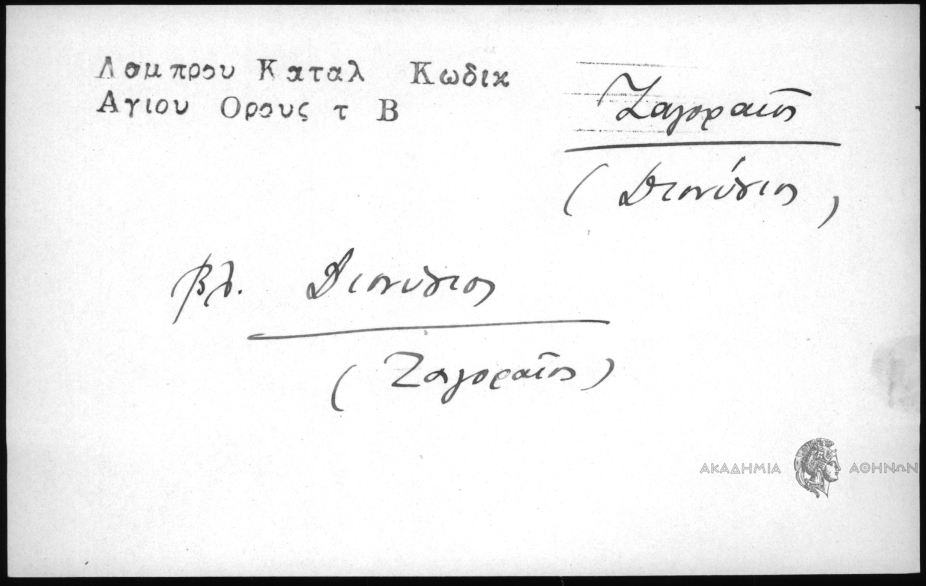 Λαμπρου Καταλ Κωδικ
Αγιου Ορους τ Β
Ζαγοραῖος
(Διονύσιος)
βλ. Διονύσιος
(Ζαγοραῖος)
ΑΚΑΔΗΜΙΑ ΑΘΗΝΩΝ